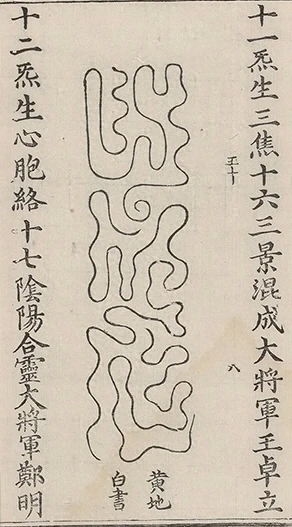 十一炁生三焦十六三景混成大將軍王卓立
五十
八
黄地
白書
十二炁生心胞絡十七陰陽合靈大將軍鄭明